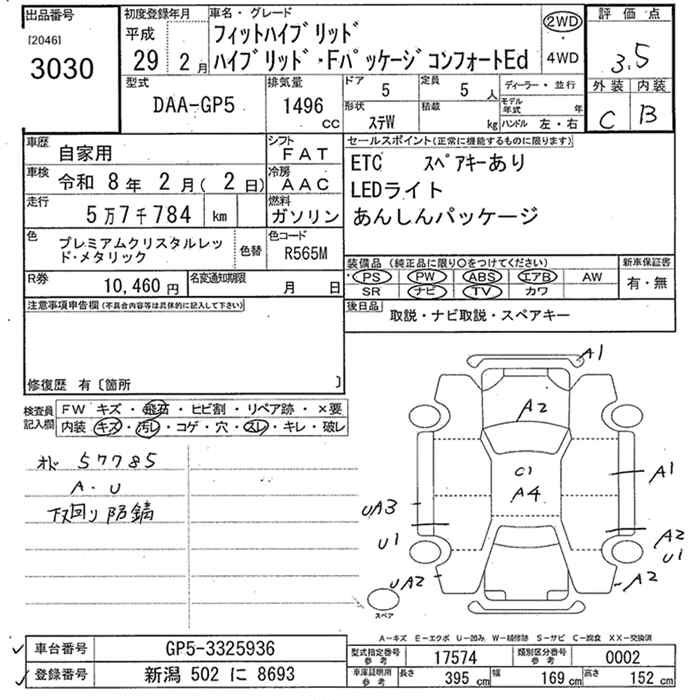 出品番号
[2046]
3030
初度登録年月
平成
29 2月
車名・グレード
フィットハイブリッド
ハイブリッド・Fパッケージ コンフォートEd
2WD
4WD
評価点
3.5
外装 内装
C B
型式
DAA-GP5
排気量
1496 cc
ドア
5
定員
5 人
形状
ステW
積載
kg
ディーラー・並行
モデル年式 年
ハンドル 左・右
車歴
自家用
シフト
FAT
車検
令和 8年 2月( 2日)
冷房
AAC
走行
5万7千784 km
燃料
ガソリン
色
プレミアムクリスタルレッド・メタリック
色替
色コード
R565M
R券
10,460 円
名変通知期限
月 日
セールスポイント(正常に機能するものに限ります)
ETC スペアキーあり
LEDライト
あんしんパッケージ
装備品(純正品に限り○をつけてください)
PS PW ABS エアB AW
SR ナビ TV カワ
新車保証書
有・無
後日品
取説・ナビ取説・スペアキー
注意事項申告欄(不具合内容等は具体的に記入して下さい)
修復歴 有〔箇所 〕
検査員記入欄
FW キズ・飛石・ヒビ割・リペア跡・×要
内装 キズ・汚レ・コゲ・穴・スレ・キレ・破レ
オド 57785
A.U
下回り防錆
A1
A2
C1
A4
A1
UA3
U1
A2
U1
UA2
A2
スペア
A-キズ E-エクボ U-凹み W-補修跡 S-サビ C-腐食 XX-交換済
車台番号
GP5-3325936
登録番号
新潟 502 に 8693
型式指定番号
参考
17574
類別区分番号
参考
0002
車庫証明用
参考
長さ 395 cm 幅 169 cm 高さ 152 cm